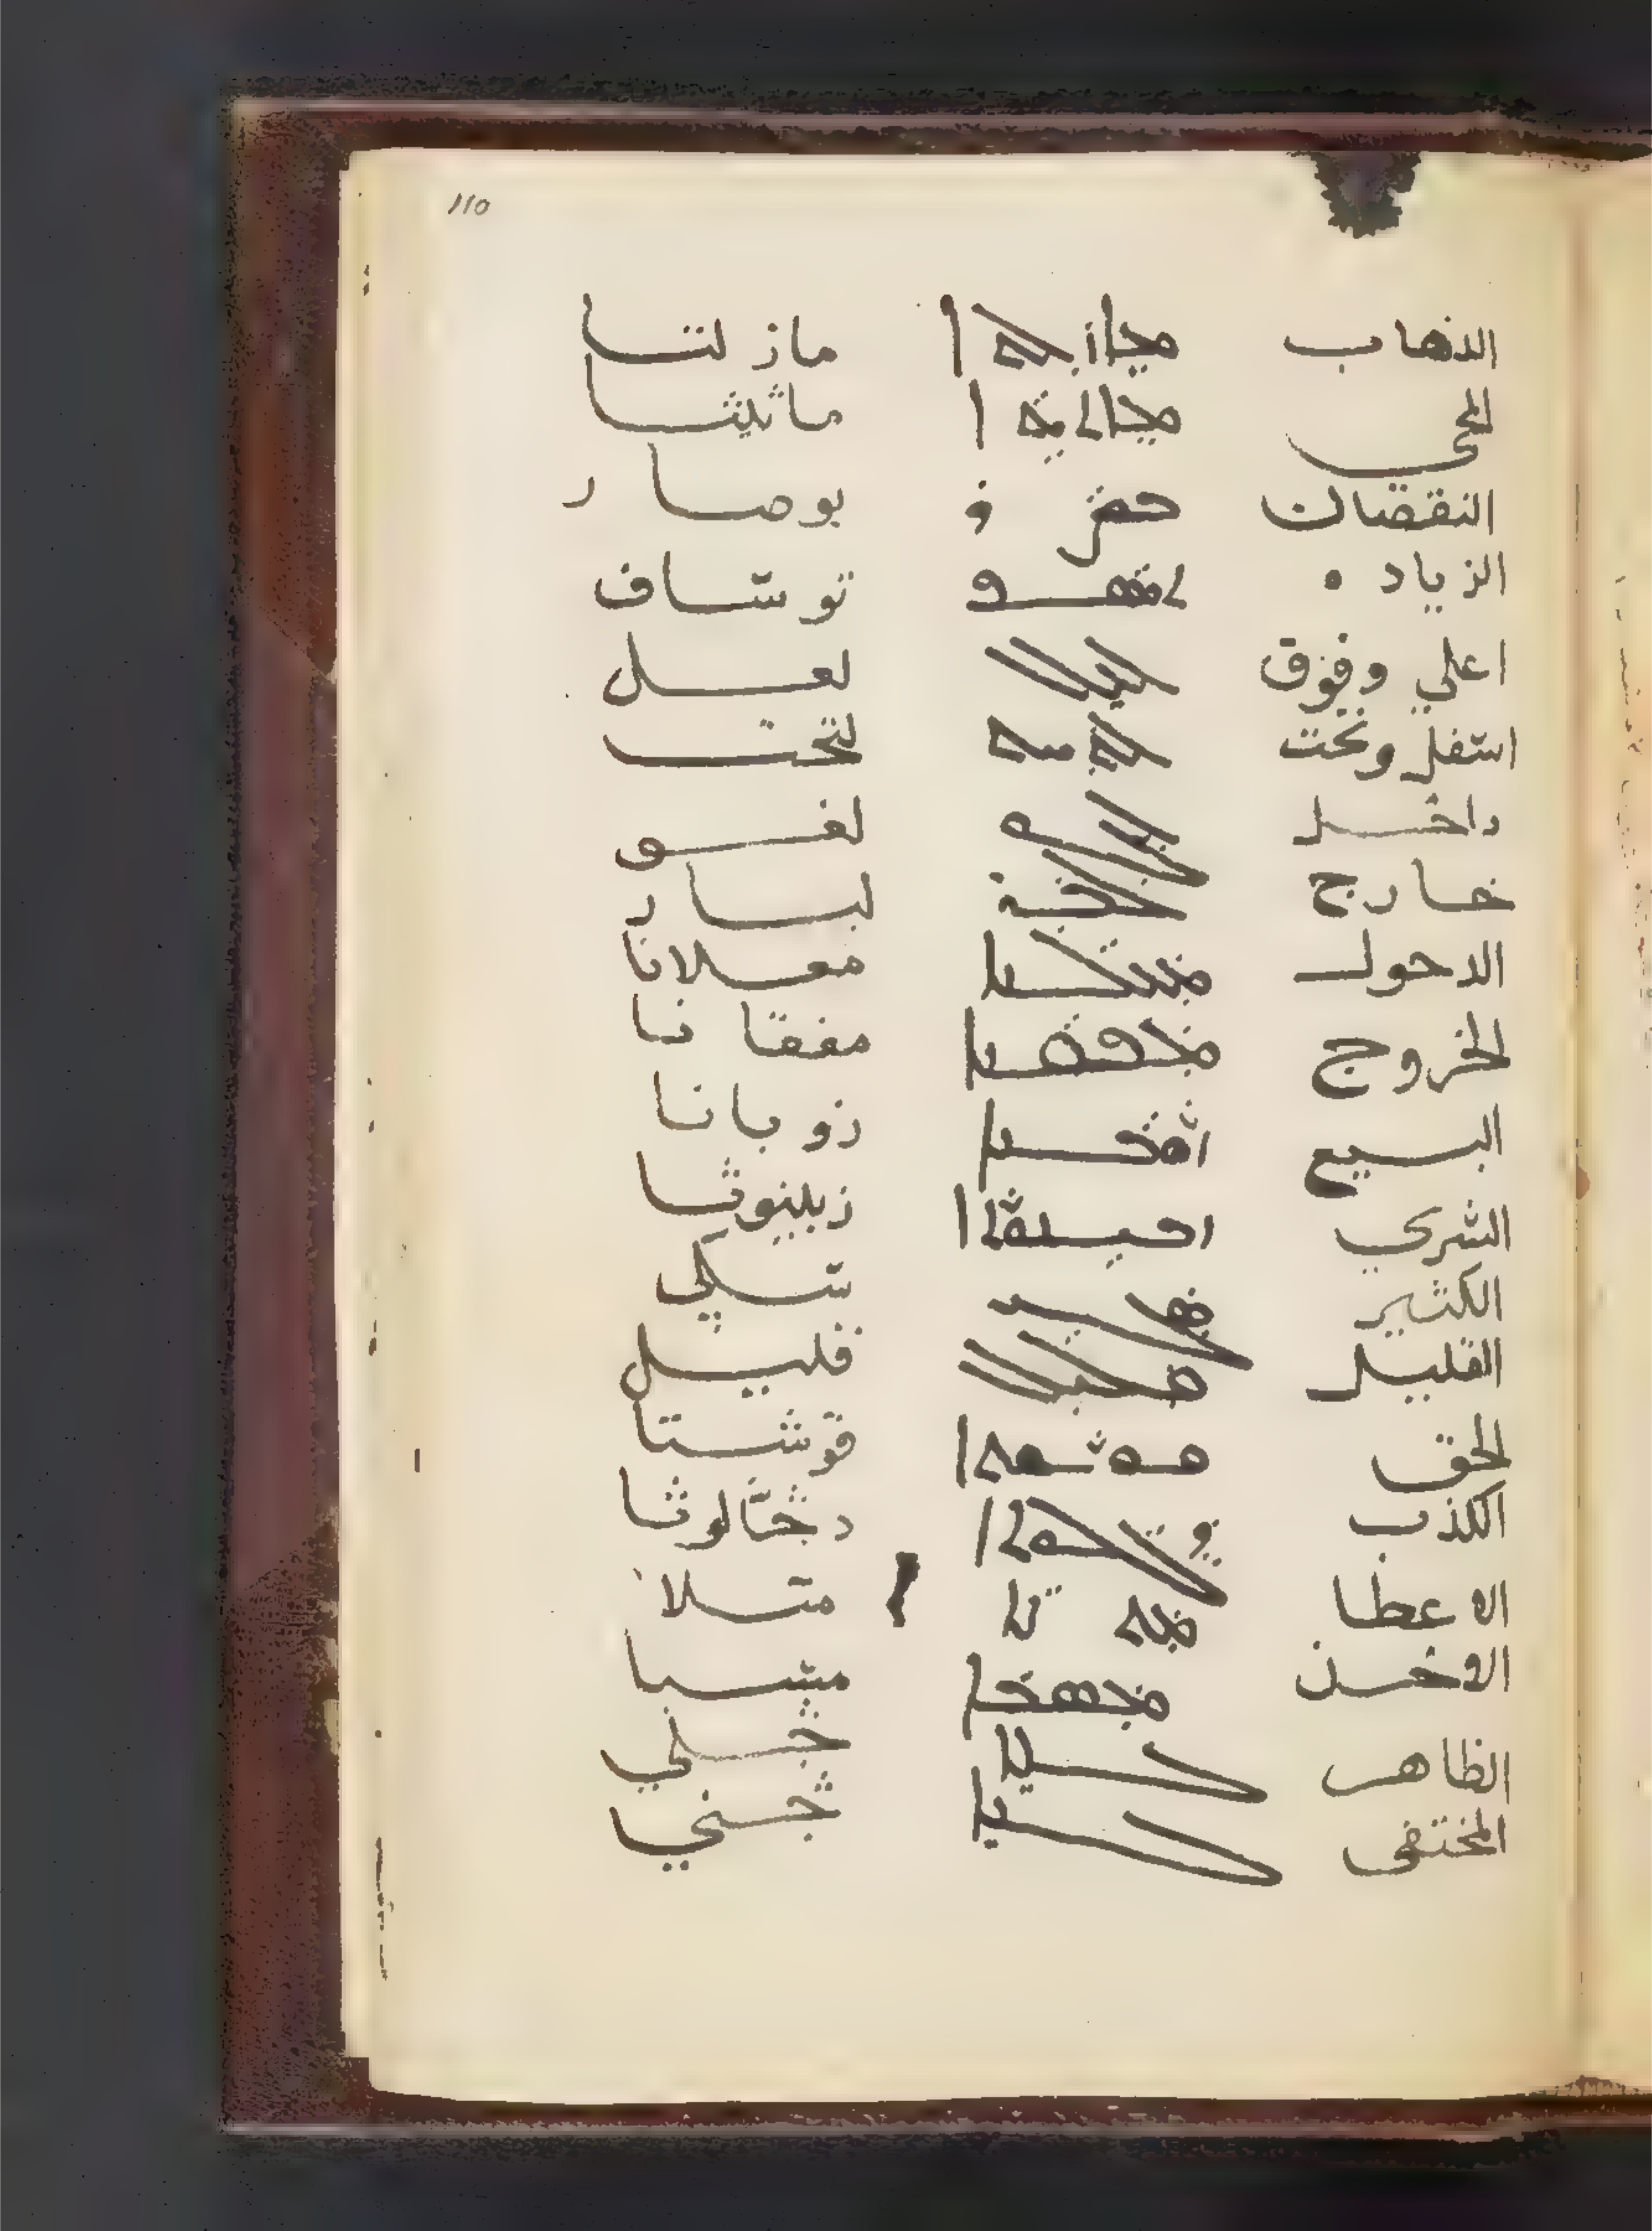 110
الذهاب ܡܐܙܠܬܐ مازلتا
المجي ܡܐܬܝܬܐ ماثيثا
النقصان ܒܘܨܪ بوصار
الزياده ܬܘܣܦ توساف
اعلي وفوق ܠܥܠ لعل
اسفل وتحت ܠܬܚܬ لتحت
داخل ܠܓܘ لغو
خارج ܠܒܪ لبار
الدخول ܡܥܠܢܐ معلانا
الخروج ܡܦܩܢܐ مفقانا
البيع ܙܘܒܢܐ زوبانا
الشري ܙܒܝܢܘܬܐ زبينوثا
الكثير ܣܓܝ سكي
القليل ܩܠܝܠ قليل
الحق ܩܘܫܬܐ قوشتا
الكذب ܕܓܠܘܬܐ دجالوثا
الاعطا ܡܬܠܐ متلا
ܡܣܒܐ مسبا
الظاهر ܓܠܝܐ جلي
المختفي ܓܢܝܐ جني